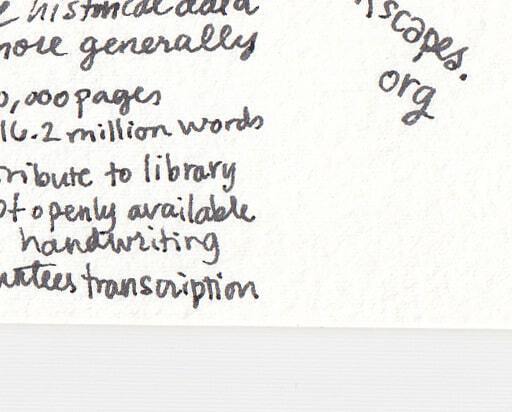 historical data
more generally
0,000 pages
16.2 million words
tribute to library
of openly available
handwriting
transcription
scapes.
org